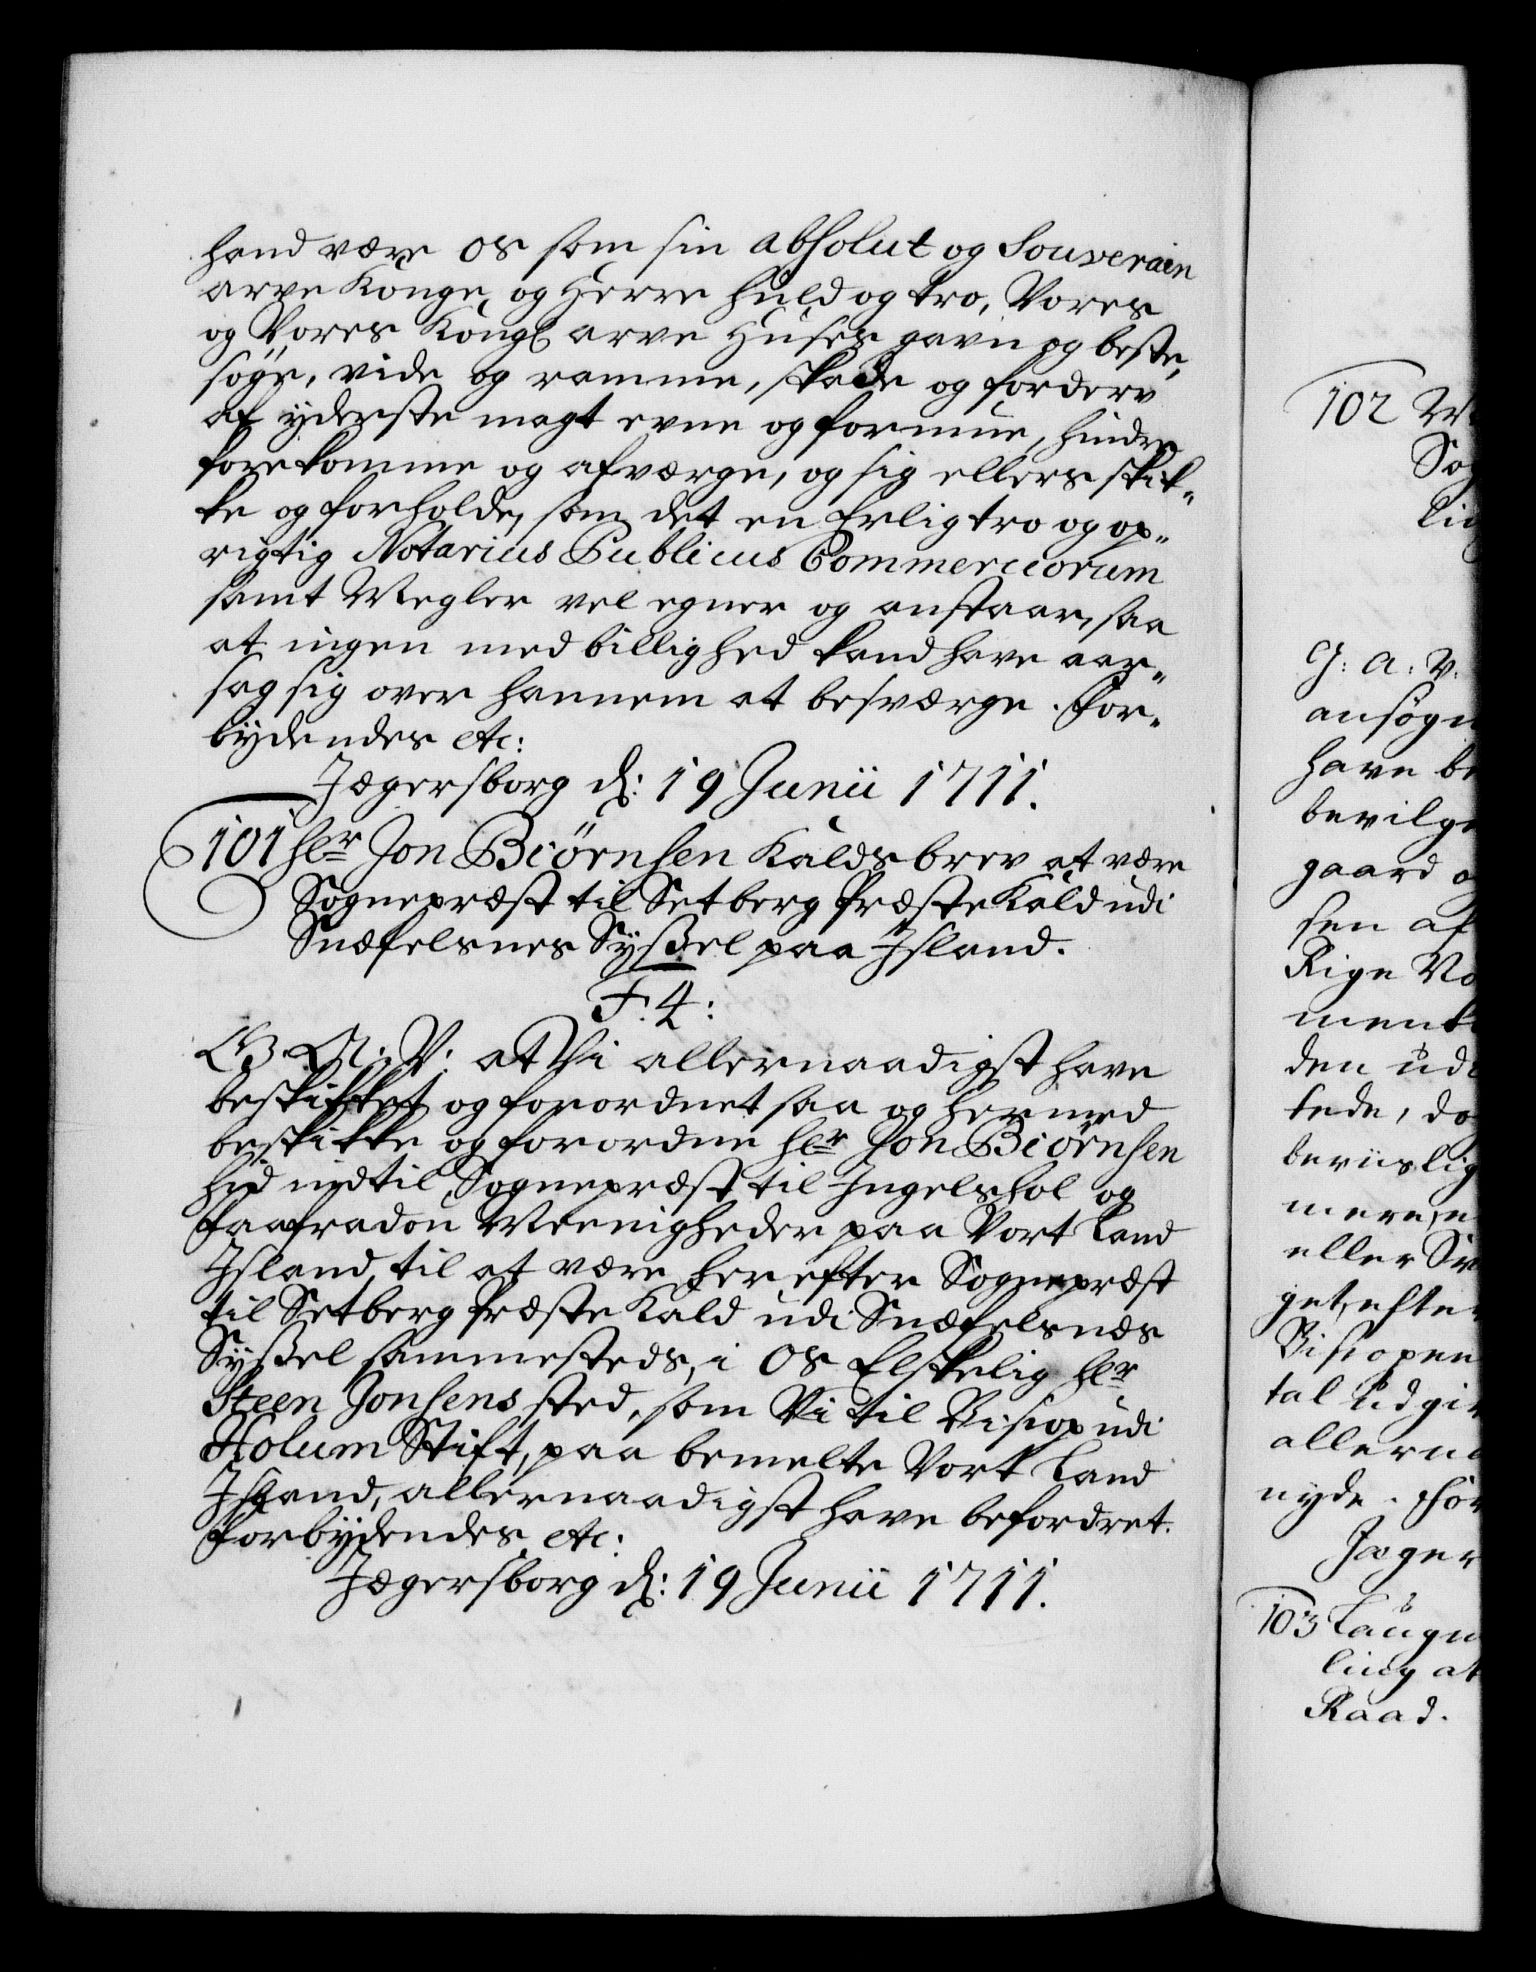 hand være os som sin absolut og Souverain
arve Konge, og Herre huld og tro, Vores
og Vores Kongl. arve Huses gavn og beste,
søge, vide og ramme, skade og forderv
af yderste magt evne og formue, hindre
forekomme og afværge, og sig ellers skik„
ke og forholde, som det en Erlig tro og op„
rigtig Notarius Publicus Commerciorum
samt Megler vel egner og anstaar, saa
at ingen med billighed kand have aar„
sag sig over hannem at besværge. For„
bydendes etc:
Jægersborg d: 19 Junii 1711.
101 hr Jon Biørnsen Kaldsbrev at være
Sognepræst til Setberg Præste Kald udi
Snæfelsnes Syssel paa Island.
F. 4:
G. A. V. at Vi allernaadigst have
beskikket og forordnet saa og hermed
beskikke og forordne hr Jon Biørnsen
hid indtil Sognepræst til Ingelshol og
Faafradon Meenigheder paa Vort Land
Island, til at være herefter Sognepræst
til Setberg Præste Kald udi Snæfelsnæs
Syssel sammesteds, i Os Elskelig hr
Steen Jonsens sted, som Vi til Bisiop udi
Holum Stift, paa bemelte Vort Land
Island, allernaadigst have befordret.
Forbydendes etc:
Jægersborg d: 19 Junii 1711.
102
Sog
lig
G: A: V:
ansøgn
have be
bevilge
gaard og
sen af
Rige No
ment
den udi
tede, do
beviislig
mere, e
eller Sv
get, efter
Bisiopen
tal udgiv
allerna
nyde. For
Jæger
103 Laugv
ling at
Raad.